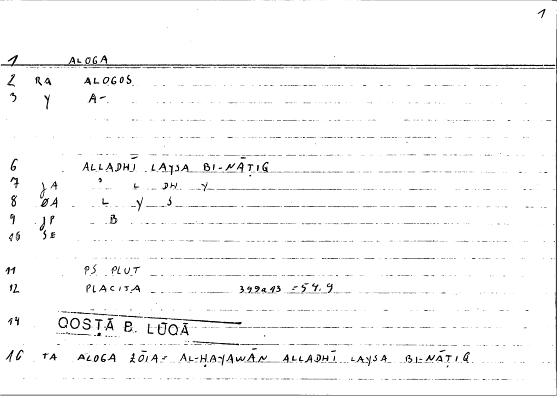 1
1 ALOGA
2 RA ALOGOS
3 Y A-
6 ALLADHĪ LAYSA BI-NĀṬIQ
7 JA ʾ L DH Y
8 ØA L Y S
9 JP B
10 SE
11 PS PLUT
12 PLACITA 399a13 = 54.9
14 QOSṬĀ B. LŪQĀ
16 TA ALOGA ZŌIA= AL-ḤAYAWĀN ALLADHĪ LAYSA BI-NĀṬIQ